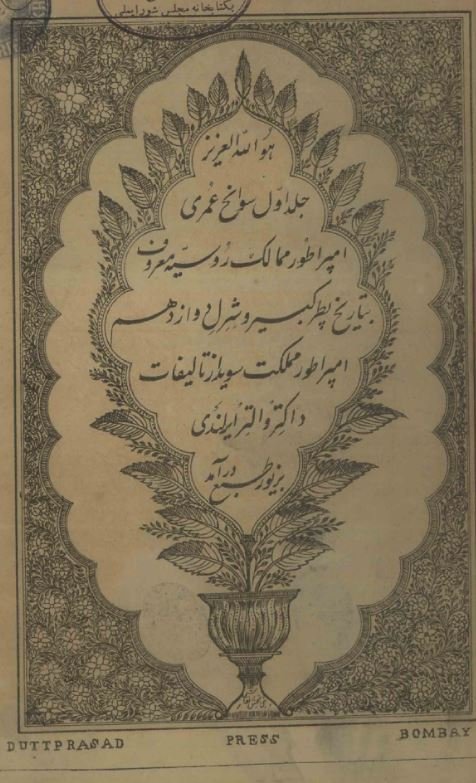 کتابخانه مجلس شورایملی
هو الله العزیز
جلد اول سوانح عمری
امپراطور ممالک روسیه معروف
بتاریخ پطر کبیر و شرل دوازدهم
امپراطور مملکت سوید از تالیفات
داکتر والتر ایرلندی
بزیور طبع درآمد
DUTTPRASAD PRESS BOMBAY